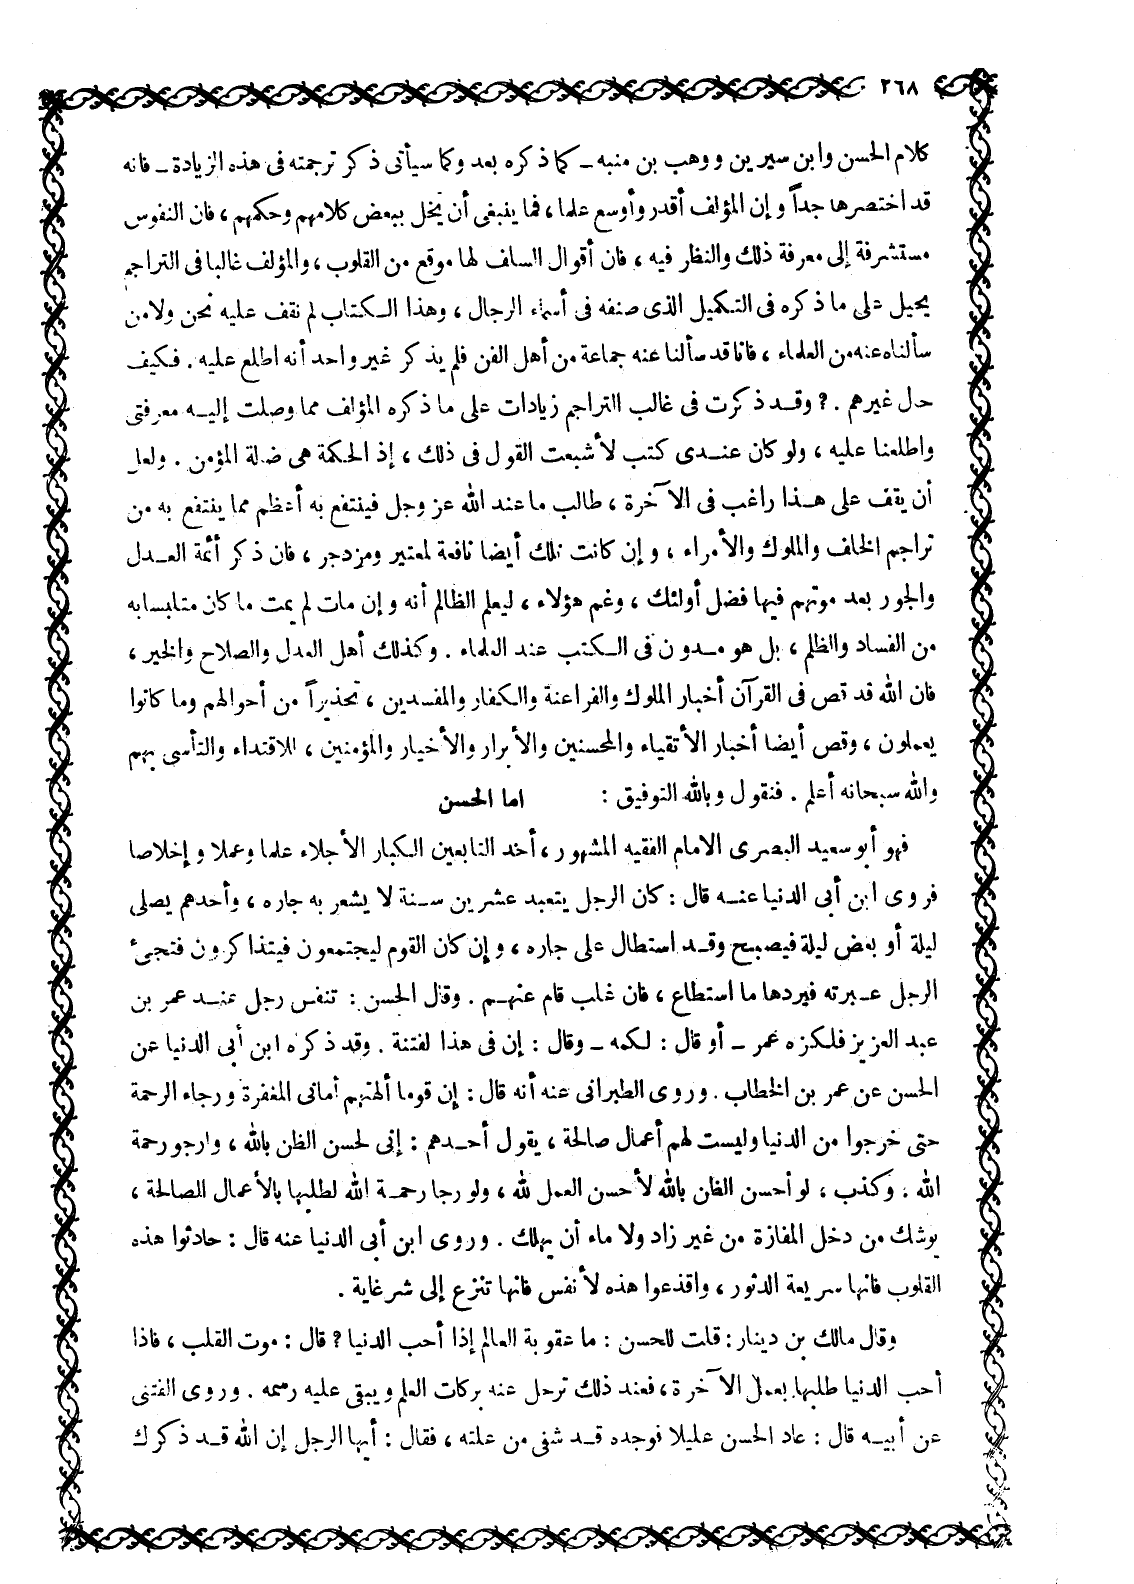 ٢٦٨
كلام الحسن وابن سيرين ووهب بن منبه ــ كما ذكره بعد وكما سيأتى ذكر ترجمته فى هذه الزيادة ــ فانه
قد اختصرها جداً وإن المؤلف أقدر وأوسع علما ، فما ينبغى أن يخل ببعض كلامهم وحكمهم ، فان النفوس
مستشرفة إلى معرفة ذلك والنظر فيه ، فان أقوال السلف لها موقع من القلوب ، والمؤلف غالبا فى التراجم
يحيل على ما ذكره فى التكميل الذى صنفه فى أسماء الرجال ، وهذا الكتاب لم نقف عليه نحن ولا من
سألناه عنه من العلماء ، فانا قد سألنا عنه جماعة من أهل الفن فلم يذكر غير واحد أنه اطلع عليه . فكيف
حال غيرهم . ? وقد ذكرت فى غالب التراجم زيادات على ما ذكره المؤلف مما وصلت إليه معرفتى
واطلعنا عليه ، ولو كان عندى كتب لأشبعت القول فى ذلك ، إذ الحكمة هى ضالة المؤمن . ولعل
أن يقف على هذا راغب فى الآخرة ، طالب ما عند الله عز وجل فينتفع به أعظم مما ينتفع به من
تراجم الخلف والملوك والأمراء ، وإن كانت تلك أيضا نافعة لمعتبر ومزدجر ، فان ذكر أئمة العدل
والجور بعد موتهم فيها فضل أولئك ، وغم هؤلاء ، ليعلم الظالم أنه وإن مات لم يمت ما كان متلبسا به
من الفساد والظلم ، بل هو مدون فى الكتب عند العلماء . وكذلك أهل العدل والصلاح والخير ،
فان الله قد قص فى القرآن أخبار الملوك والفراعنة والكفار والمفسدين ، تحذيراً من أحوالهم وما كانوا
يعملون ، وقص أيضا أخبار الأتقياء والمحسنين والأبرار والأخيار والمؤمنين ، للاقتداء والتأسى بهم
والله سبحانه أعلم . فنقول وبالله التوفيق : اما الحسن
فهو أبو سعيد البصرى الامام الفقيه المشهور ، أحد التابعين الكبار الأجلاء علما وعملا وإخلاصا
فروى ابن أبى الدنيا عنه قال : كان الرجل يتعبد عشرين سنة لا يشعر به جاره ، وأحدهم يصلى
ليلة أو بعض ليلة فيصبح وقد استطال على جاره ، وإن كان القوم ليجتمعون فيتذاكرون فتجىء
الرجل عبرته فيردها ما استطاع ، فان غلب قام عنهم . وقال الحسن : تنفس رجل عند عمر بن
عبد العزيز فلكزه عمر ــ أو قال : لكمه ــ وقال : إن فى هذا لفتنة . وقد ذكره ابن أبى الدنيا عن
الحسن عن عمر بن الخطاب . وروى الطبرانى عنه أنه قال : إن قوما ألهتهم أمانى المغفرة ورجاء الرحمة
حتى خرجوا من الدنيا وليست لهم أعمال صالحة ، يقول أحدهم : إنى لحسن الظن بالله ، وارجو رحمة
الله ، وكذب ، لو أحسن الظن بالله لأحسن العمل لله ، ولو رجا رحمة الله لطلبها بالأعمال الصالحة ،
يوشك من دخل المفازة من غير زاد ولا ماء أن يهلك . وروى ابن أبى الدنيا عنه قال : حادثوا هذه
القلوب فانها سريعة الدثور ، واقذعوا هذه لأنفس فانها تنزع إلى شر غاية .
وقال مالك بن دينار : قلت للحسن : ما عقوبة العالم إذا أحب الدنيا ? قال : موت القلب ، فاذا
أحب الدنيا طلبها بعمل الآخرة ، فعند ذلك ترحل عنه بركات العلم ويبقى عليه رسمه . وروى الفتنى
عن أبيه قال : عاد الحسن عليلا فوجده قد شفى من علته ، فقال : أيها الرجل إن الله قد ذكرك